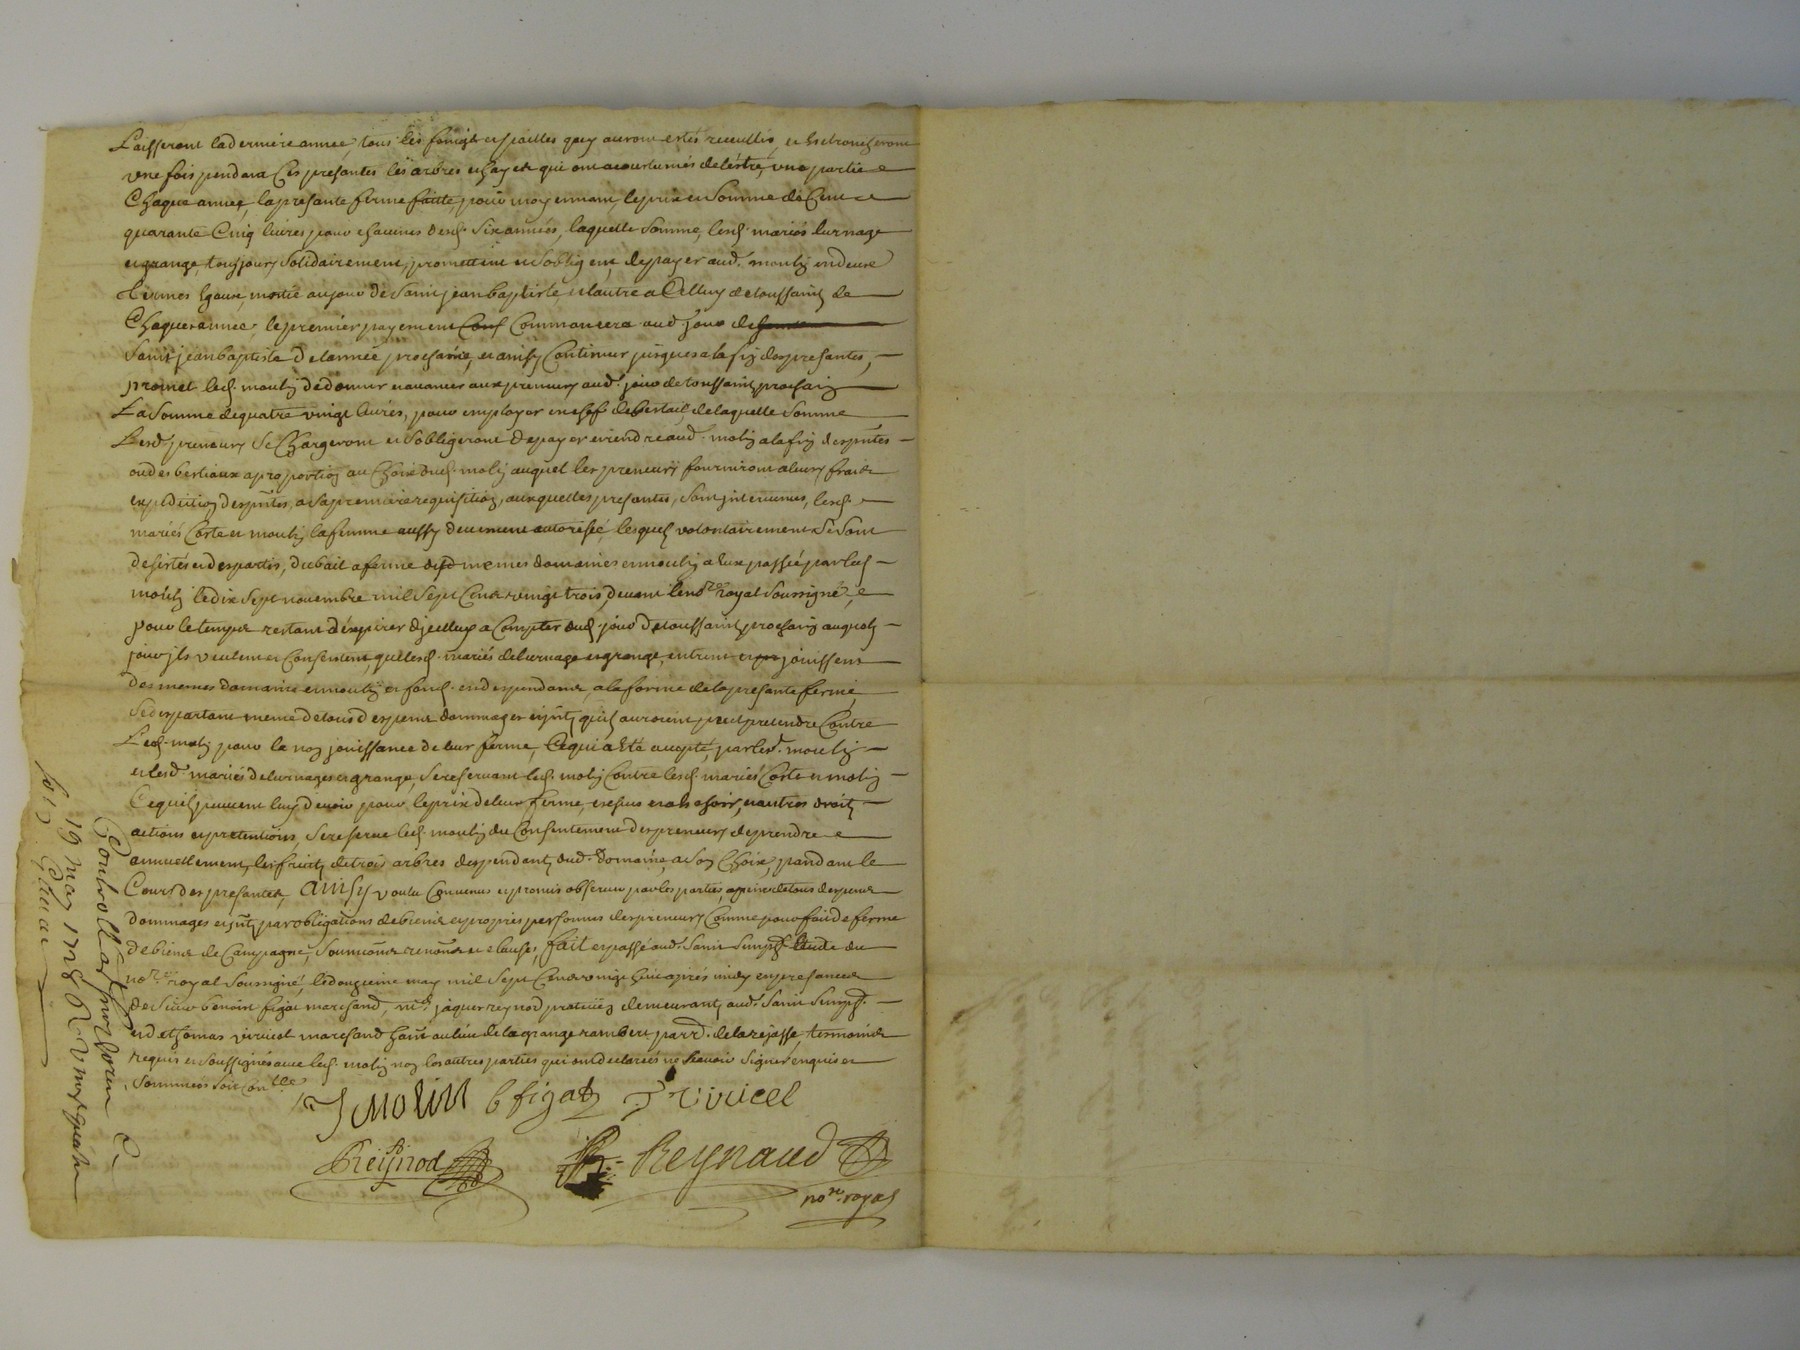 Laisseront la derniere année, tous les foings et pailles quy auront estés recueillis, et
une fois pendant ces presantes les arbres et hayes qui ont acoustumés de l'estre, une partie
chaque année, la presante ferme faitte, pour moyennant, le prix et somme de cent
quarante cinq livres pour chacunes desd. six années, laquelle somme, lesd. mariés lurnage
et grange, toujours solidairement, promettent et sobligent, de payer aud. moulin en deux
termes egaux, moitié au jour de saint jean baptiste et l'autre a celluy de toussaintz de
chaque année, le premier payement conf commancera aud. jour de
saint jean baptiste de l'année prochaine, et ainsy continuer jusques a la fin des presantes,
promet led. moulin de donner et avancer aux preneurs aud. jour de toussaintz prochain
La somme de quatre vingt livres, pour employer en chef de bestail de laquelle somme
Lesd. preneurs se chargeront et s'obligeront de payer et rendre aud. molin a la fin des pntes
ou des bestiaux a proportion au choix dud. molin auquel les preneurs fourniront a leurs fraix
expedition des pntes, a sa premiere requisition, auxquelles presantes, sont intervenus, lesd.
mariés Coste et moulin, la femme aussy deuement autorisée lesquels volontairement se sont
desistés et despartis, du bail a ferme desd. memes domaines et moulin a eux passé par led.
moulin le dix sept novembre mil sept cents vingt trois, devant le nore royal soussigné,
pour le temps restant d'expirer d'jcelluy a compter dud. jour de toussaintz prochain auquel
jour jls veulent et consentent, que lesd. mariés de lurnage et grange, entrent et jouissent
des memes domaine et moulin et fond. et despendances, a la forme de la presante ferme,
se despartant meme de tous despens dommages et jntz qu'ils auroient peut pretendre contre
Led. molin pour la non jouissance de leur ferme, ce qui a eté accepté, par led. moulin
et lesd. mariés de lurnage et grange, se reservant led. molin contre lesd. mariés Coste et molin
ce quils peuvent luy devoir pour le prix de leur ferme, et autres droitz
actions et pretentions, se reserve led. moulin du consentement des preneurs de prendre
annuellement, les fruitz de trois arbres despendantz dud. domaine, a son choix, pendant le
cours des presantes, ainsy voulu convenus et promis observer par les parties, a peine de tous despens
dommages et jntz par obligations de biens et propres personnes des preneurs comme pour fait de ferme
de biens de campagne, soumissions renons et clauses, fait et passé aud. saint simph. etude du
nore royal soussigné, le douzieme may mil sept cents vingt huit apres midy en presances
de sieur benoist figat marchand, mre jaques reynod praticien demeurantz aud. saint simph.
et de thomas viricel marchand hant au lieu de la grange rambert parr. de larejasse, tesmoins
requis et soussignés avec led. molin non les autres parties qui ont declarés ne scavoir signer enquis et
sommées soit conlle
J Molin b figat T viricel
Reynod Reynaud
nore royal
Controllé a st simphorien
19 may 1728 R